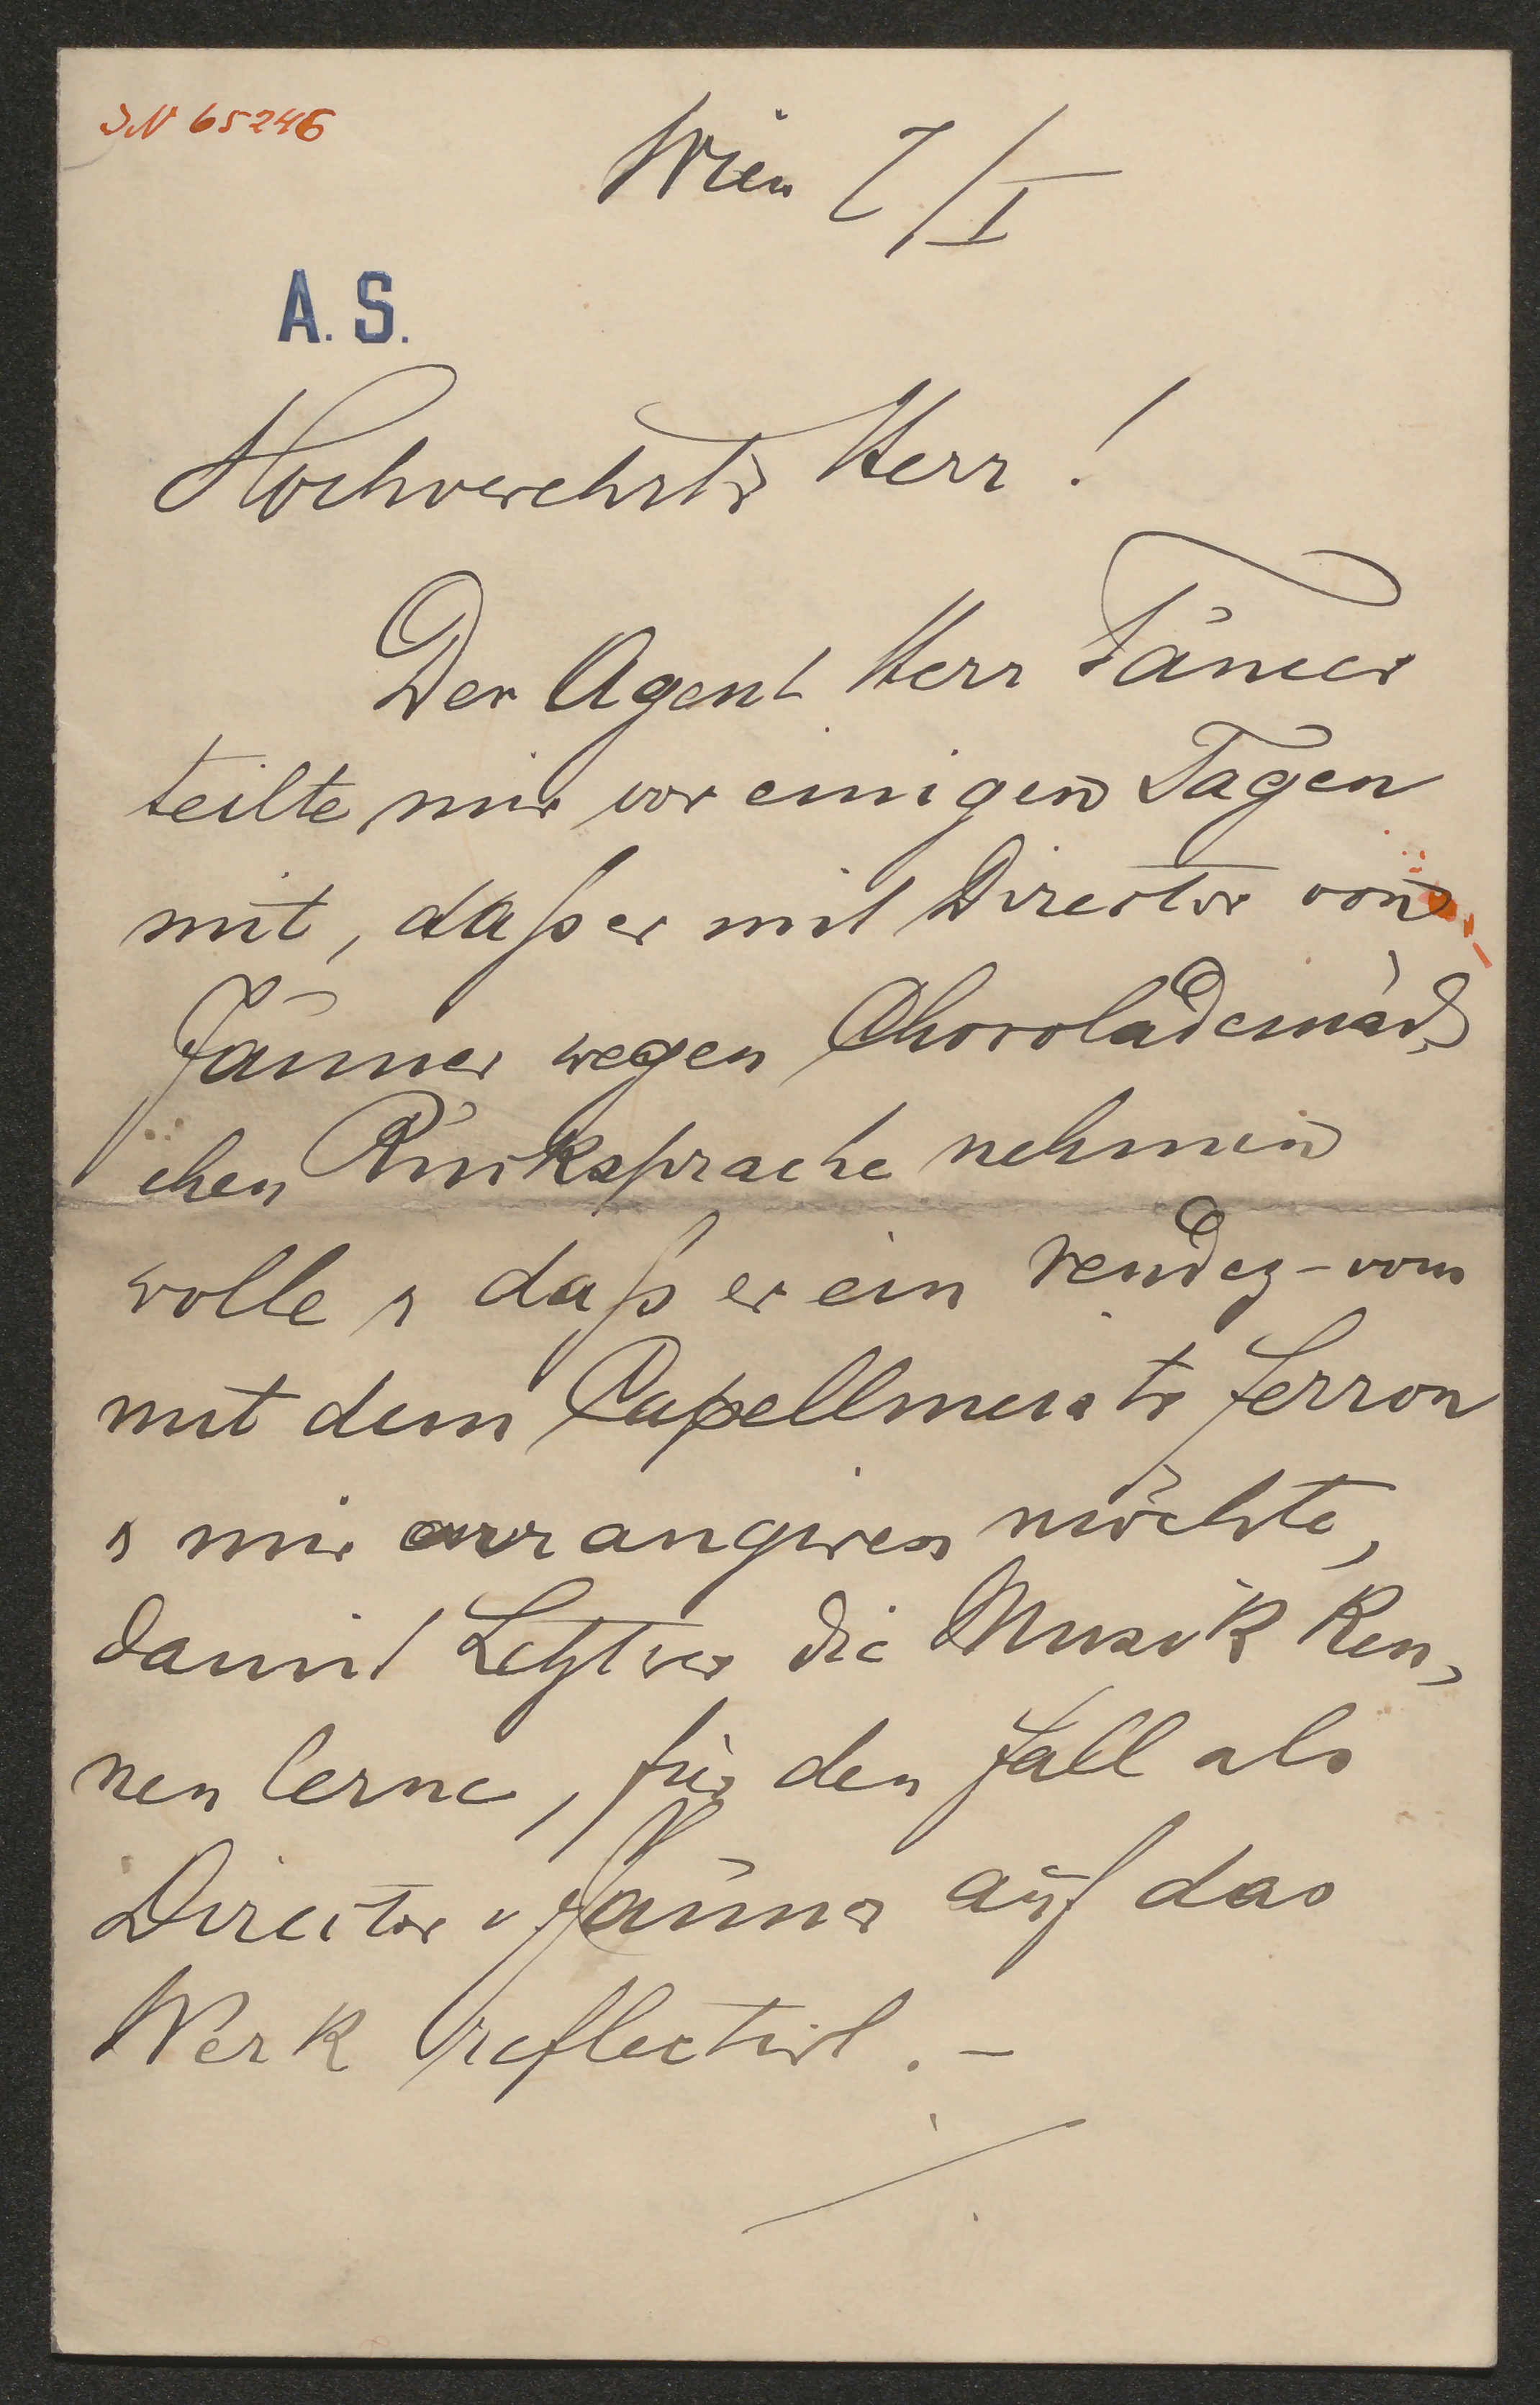 IN 65246
Wien 7/I
A. S.
Hochverehrter Herr!
Der Agent Herr Täncer
teilte mir vor einigen Tagen
mit, daß er mit Director von
Jauner wegen Chocolademäd,
chen Rücksprache nehmen
wolle u daß er ein rendez-vous
mit dem Capellmeister Ferron
u mir arrangiren möchte,
damit Letzterer die Musik ken,
nen lerne, für den Fall als
Director v Jauner auf das
Werk reflectirt. –